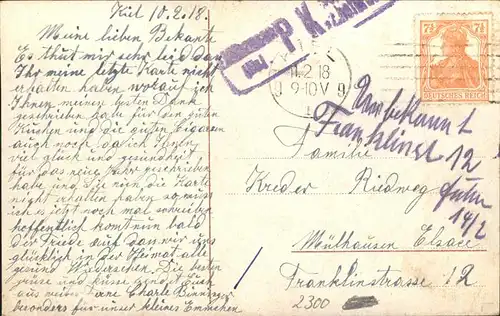 Kiel 10.2.18.
Meine lieben Bekante
Es thut mir sehr leid das
Ihr meine letzte Karte nicht
erhalten haben worauf ich
Ihnen meinen besten Dank
geschrieben habe für den guten
Kuchen und die guten Cigaren
auch noch das ich Ihnen
viel glück und gesundheit
für das neue Jahr geschrieben
habe und Sie nun die Karte
nicht erhalten haben so muss
ich es jetzt noch mal schreiben
hoffentlich komt nun bald
der Friede auf das wir uns
glücklich in der Heimat alle
gesund Wiedersehen. Die besten
grüsse und küsse sendet Euch
aus weiter Ferne Charle
besonders für unser kleines Emmchen
P.K.
KIEL
11.2.18
9-10V
7½ 7½
DEUTSCHES REICH
Unbekannt
Franklinst 12
14/2
Familie
Kreder Riedweg
Mülhausen Elsace
Franklinstrasse 12
2300